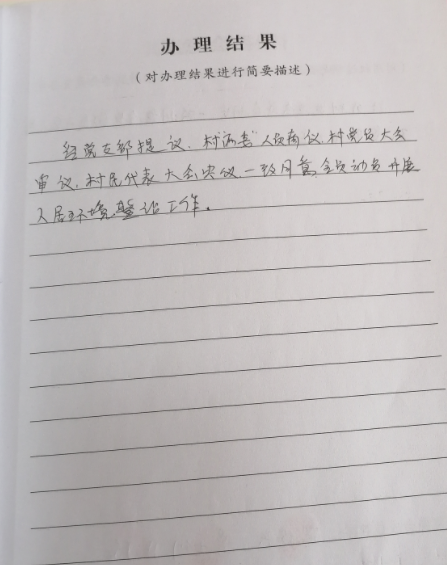 办理结果
(对办理结果进行简要描述)
经党支部提议、村两委人员商议、村党员大会
审议、村民代表大会决议、一致同意全员动员开展
人居环境整治工作。